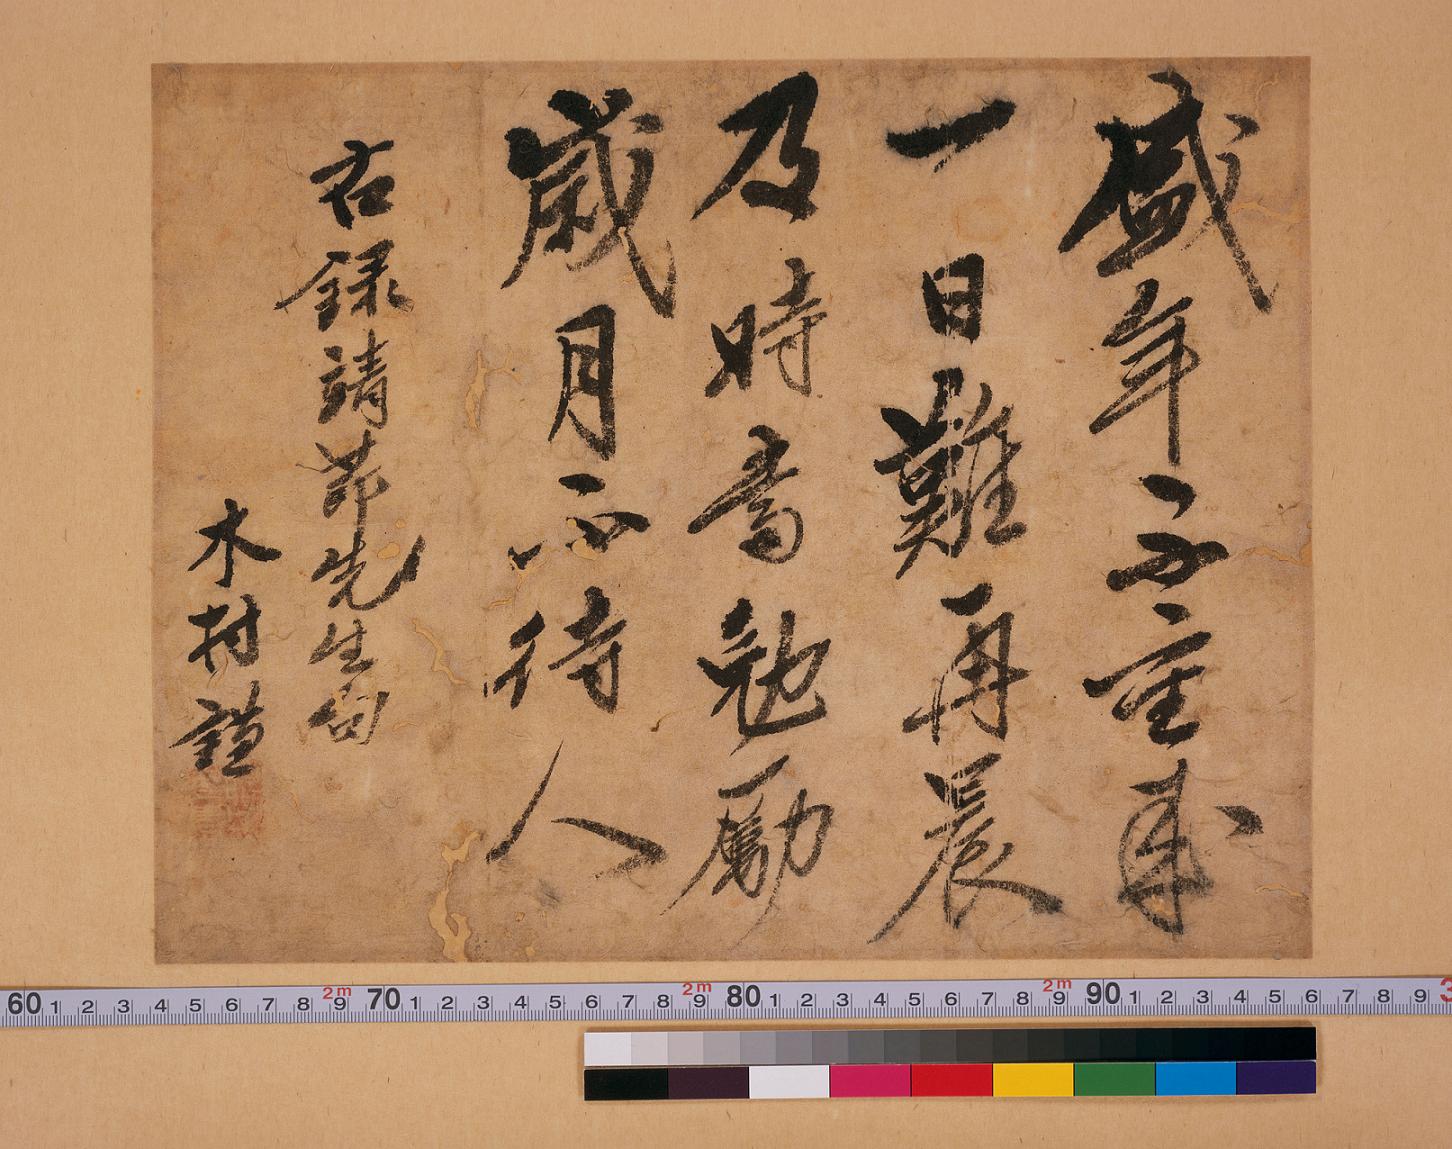 盛年不重來
一日難再晨
及時當勉勵
歲月不待人
右錄靖節先生句
木村謹
60 1 2 3 4 5 6 7 8 2m 9 70 1 2 3 4 5 6 7 8 2m 9 80 1 2 3 4 5 6 7 8 2m 9 90 1 2 3 4 5 6 7 8 9 3